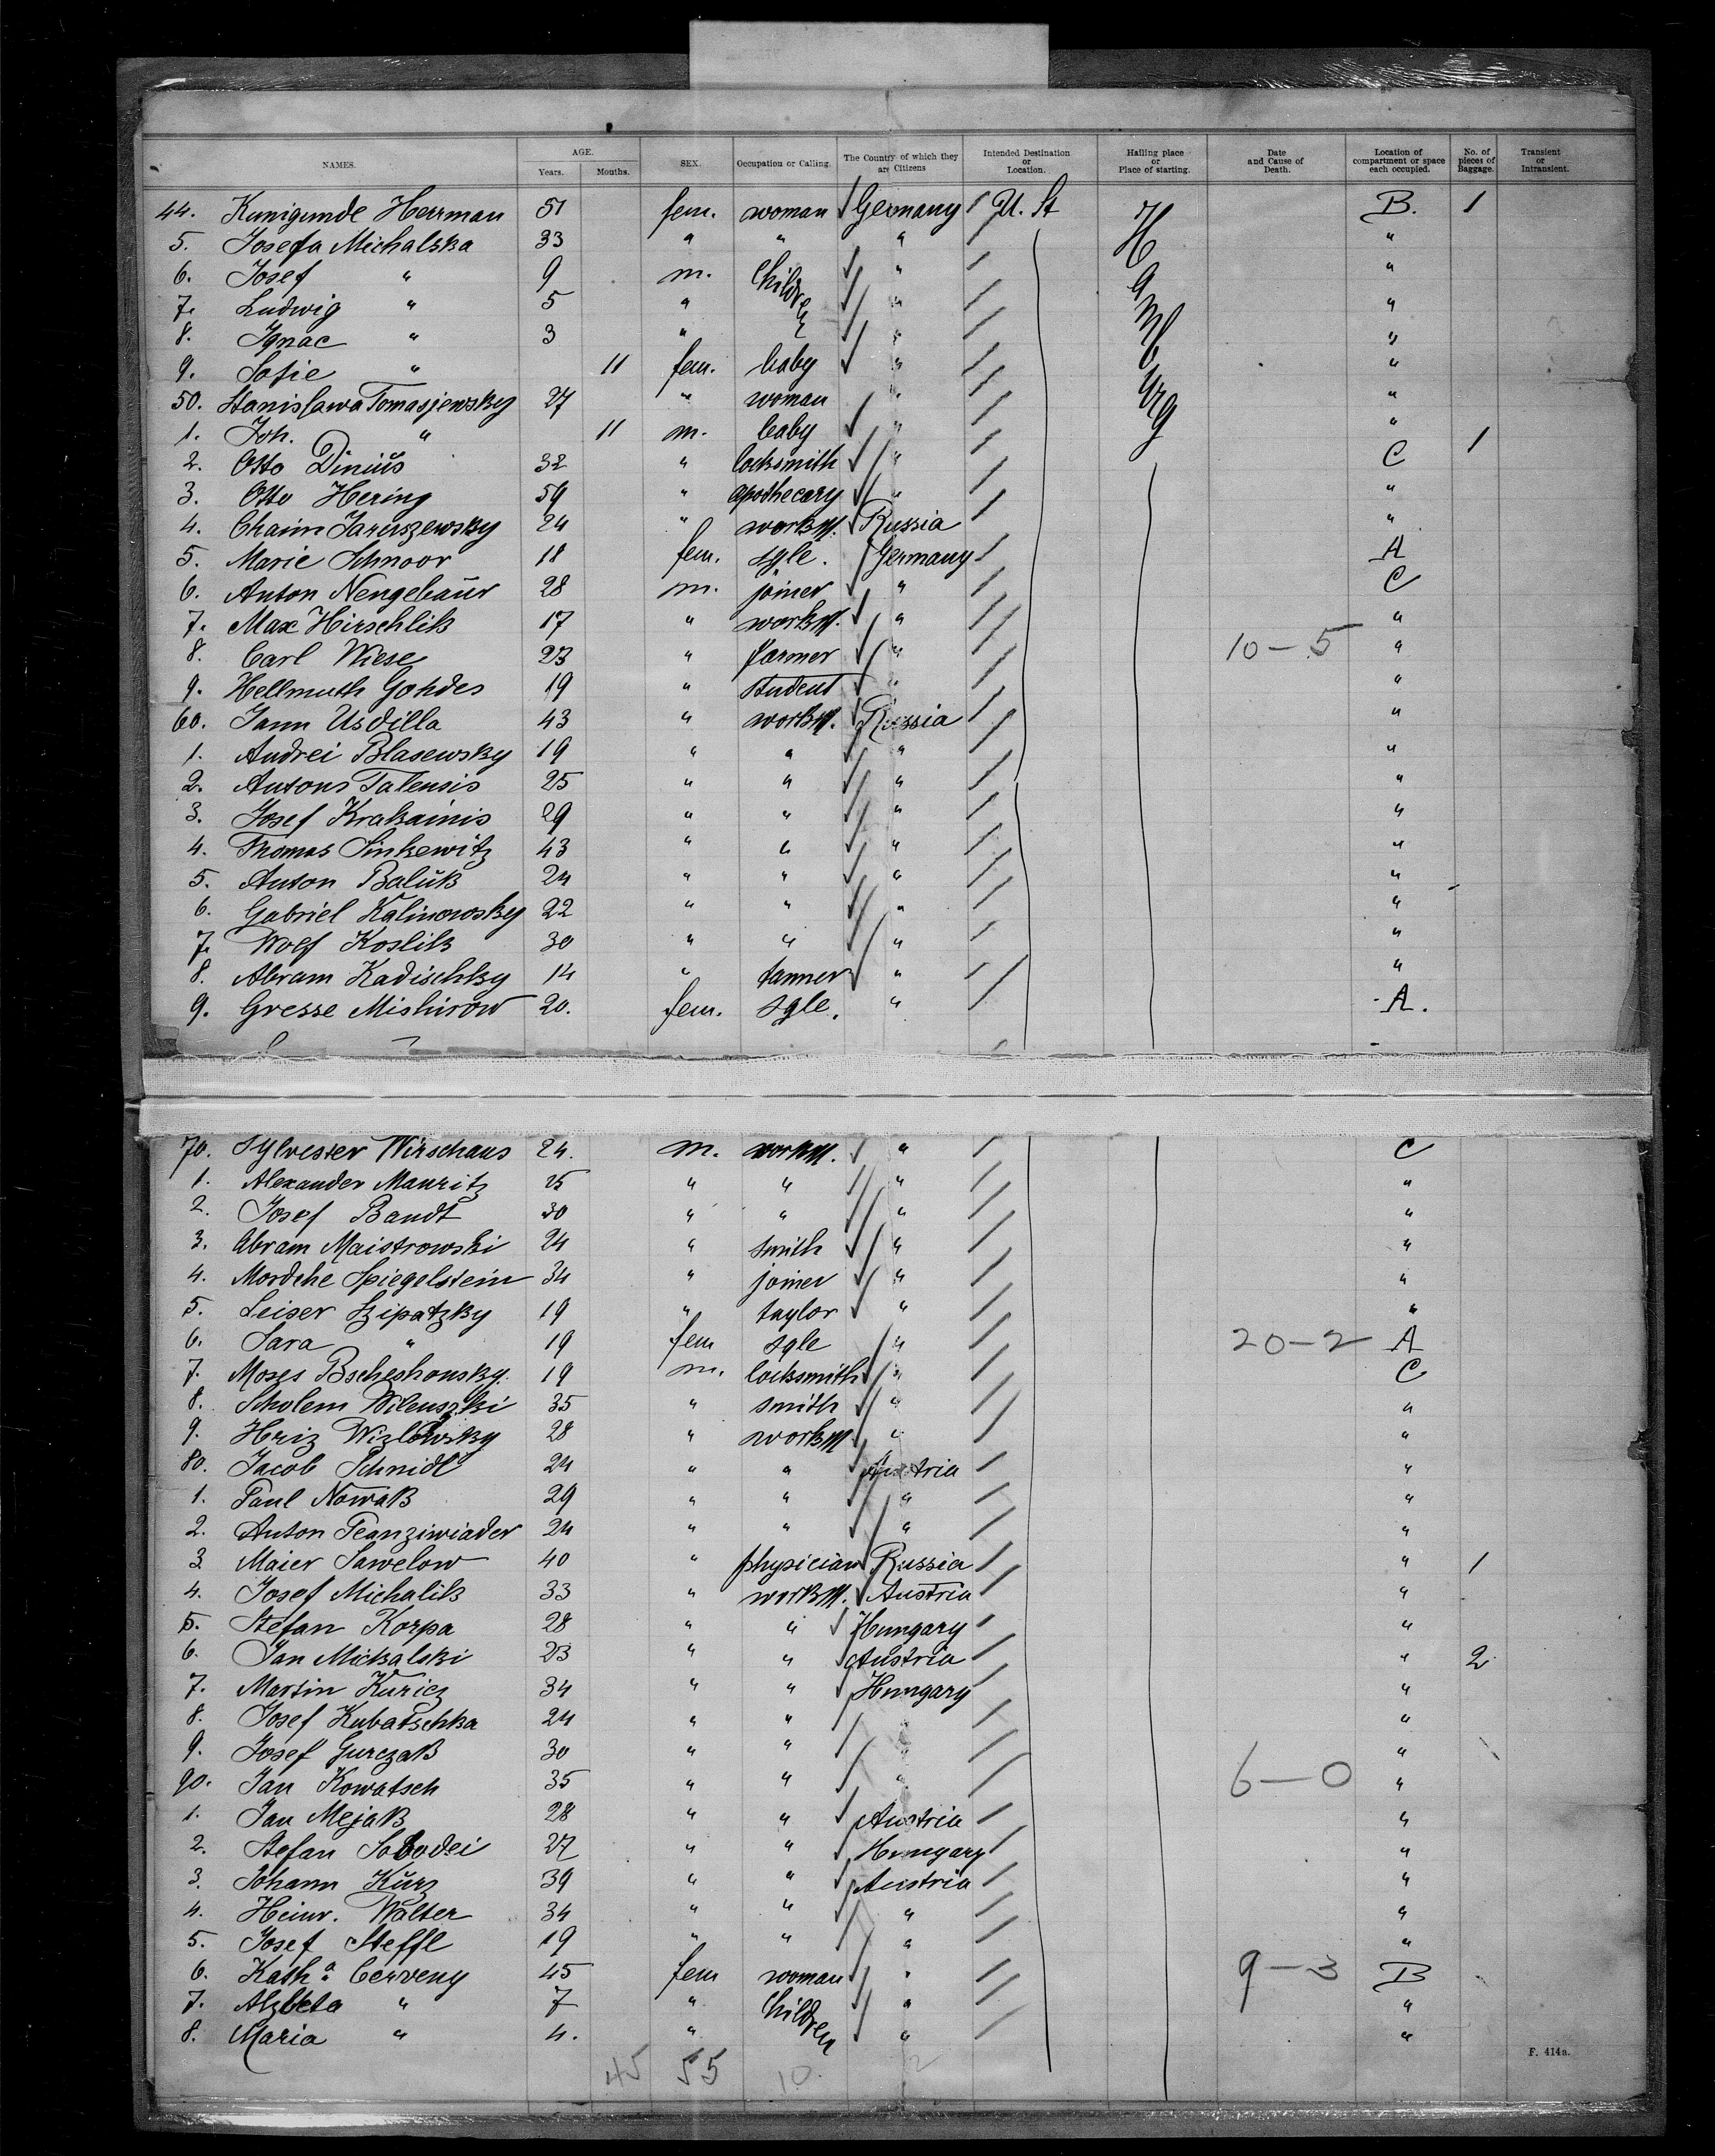 NAMES. AGE. Years. Months. SEX. Occupation or Calling. The Country of which they are Citizens Intended Destination or Location. Hailing place or Place of starting. Date and Cause of Death. Location of compartment or space each occupied. No. of pieces of Baggage. Transient or Intransient.
44. Kunigunde Herrman 51 fem. woman Germany U. St Hamburg B. 1
5. Josefa Michalska 33 " " " "
6. Josef " 9 m. Children " "
7. Ludwig " 5 " " "
8. Ignac " 3 " " "
9. Sofie " 11 fem. baby " "
50. Stanislawa Tomasjewsky 27 " woman " "
1. Joh. " 11 m. baby " "
2. Otto Dinius 32 " locksmith " C 1
3. Otto Hering 59 " apothecary " "
4. Chaim Jaruszewsky 24 " workm. Russia "
5. Marie Schnoor 18 fem. sgle. Germany A
6. Anton Nengebaür 28 m. joiner " C
7. Max Hirschlik 17 " workm. " "
8. Carl Wiese 23 " farmer " 10-5 "
9. Hellmuth Gohdes 19 " student " "
60. Jann Usdilla 43 " workm. Russia "
1. Andrei Blasewsky 19 " " " "
2. Antons Talensis 25 " " " "
3. Josef Krakainis 29 " " " "
4. Thomas Sinkewitz 43 " " " "
5. Anton Balŭk 24 " " " "
6. Gabriel Kalinowsky 22 " " " "
7. Wolf Koslik 30 " " " "
8. Abram Kadischky 14 " tanner " "
9. Gresse Mishirow 20. fem. sgle. " A.
70. Sylvester Wirschaus 24. m. workm. " C
1. Alexander Mauritz 25 " " " "
2. Josef Bandt 30 " " " "
3. Abram Maistrowski 24 " smith " "
4. Mordche Spiegelstein 34 " joiner " "
5. Leiser Szipatzky 19 " taylor " "
6. Sara " 19 fem sgle " 20-2 A
7. Moses Bscheshonsky. 19 m. locksmith " C
8. Scholem Wilenszki 35 " smith " "
9. Heriz Wizlowsky 28 " workm " "
80. Jacob Schnidl 24 " " Austria "
1. Paul Nowak 29 " " " "
2. Anton 24 " " " "
3 Maier Sawelow 40 " physician Russia " 1
4. Josef Michalik 33 " workm. Austria "
5. Stefan Korpa 28 " " Hungary "
6. Jan Mickalski 23 " " Austria " 2
7. Martin Kuricz 34 " " Hungary "
8. Josef Kubatschka 24 " " " "
9. Josef Gurczak 30 " " " "
90. Jan Kowatsch 35 " " " 6-0 "
1. Jan Mejak 28 " " Austria "
2. Stefan Sobodei 27 " " Hungary "
3. Johann Kŭrz 39 " " Austria "
4. Heinr. Walter 34 " " " "
5. Josef Steffl 19 " " " "
6. Kath.a Cerveny 45 fem woman " 9-3 B
7. Alzbeta " 7 " Children " "
8. Maria " 4. " " "
45 55 10. 2
F. 414a.